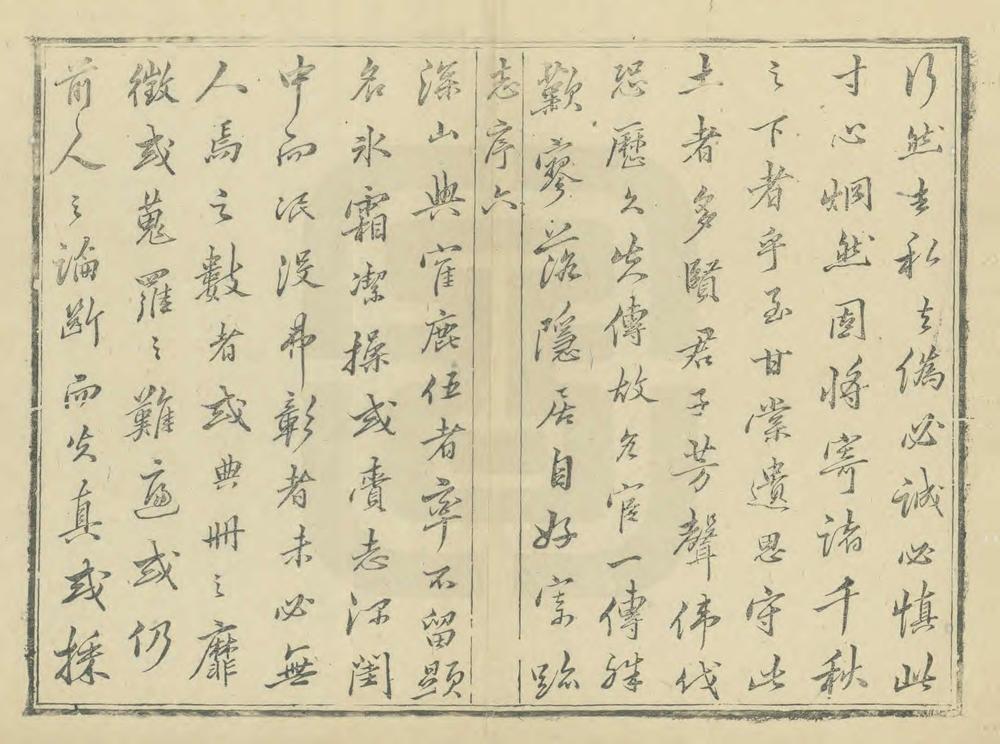 行然去私去偽必誠必慎此
寸心烱然固將寄諸千秋
之下者乎至甘棠遺思守此
土者多賢君子芳聲偉代
恐歷久失傳故名宦一傳殊
歎寥落隱居自好寄跡
志序六
深山與寉鹿伍者率不留顯
名氷霜潔操或賫志深閨
中而泯没弗彰者未必無
人焉之數者或典冊之靡
徵或蒐羅之難遍或仍
前人之論斷而失真或採